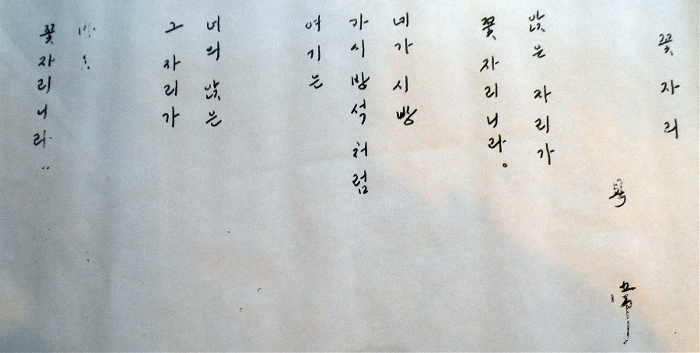 꽃 자리
앉은 자리가
꽃 자리니라。
네가 시방
가시방석처럼
여기는
너의 앉은
그 자리가
꽃자리니라..